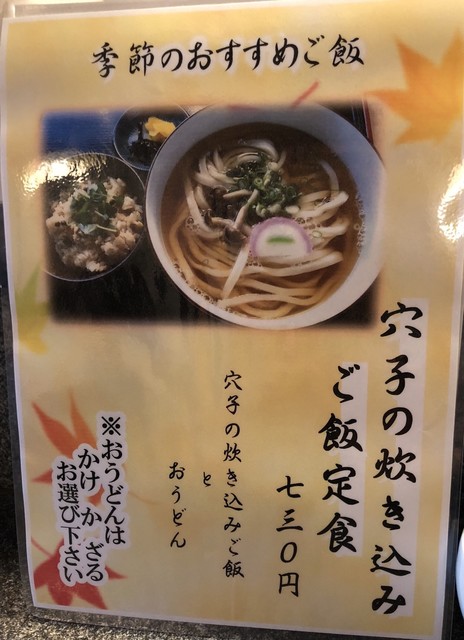 季節のおすすめご飯
穴子の炊き込み
ご飯定食
七三〇円
穴子の炊き込みご飯
と
おうどん
※おうどんは
かけ か ざる
お選び下さい